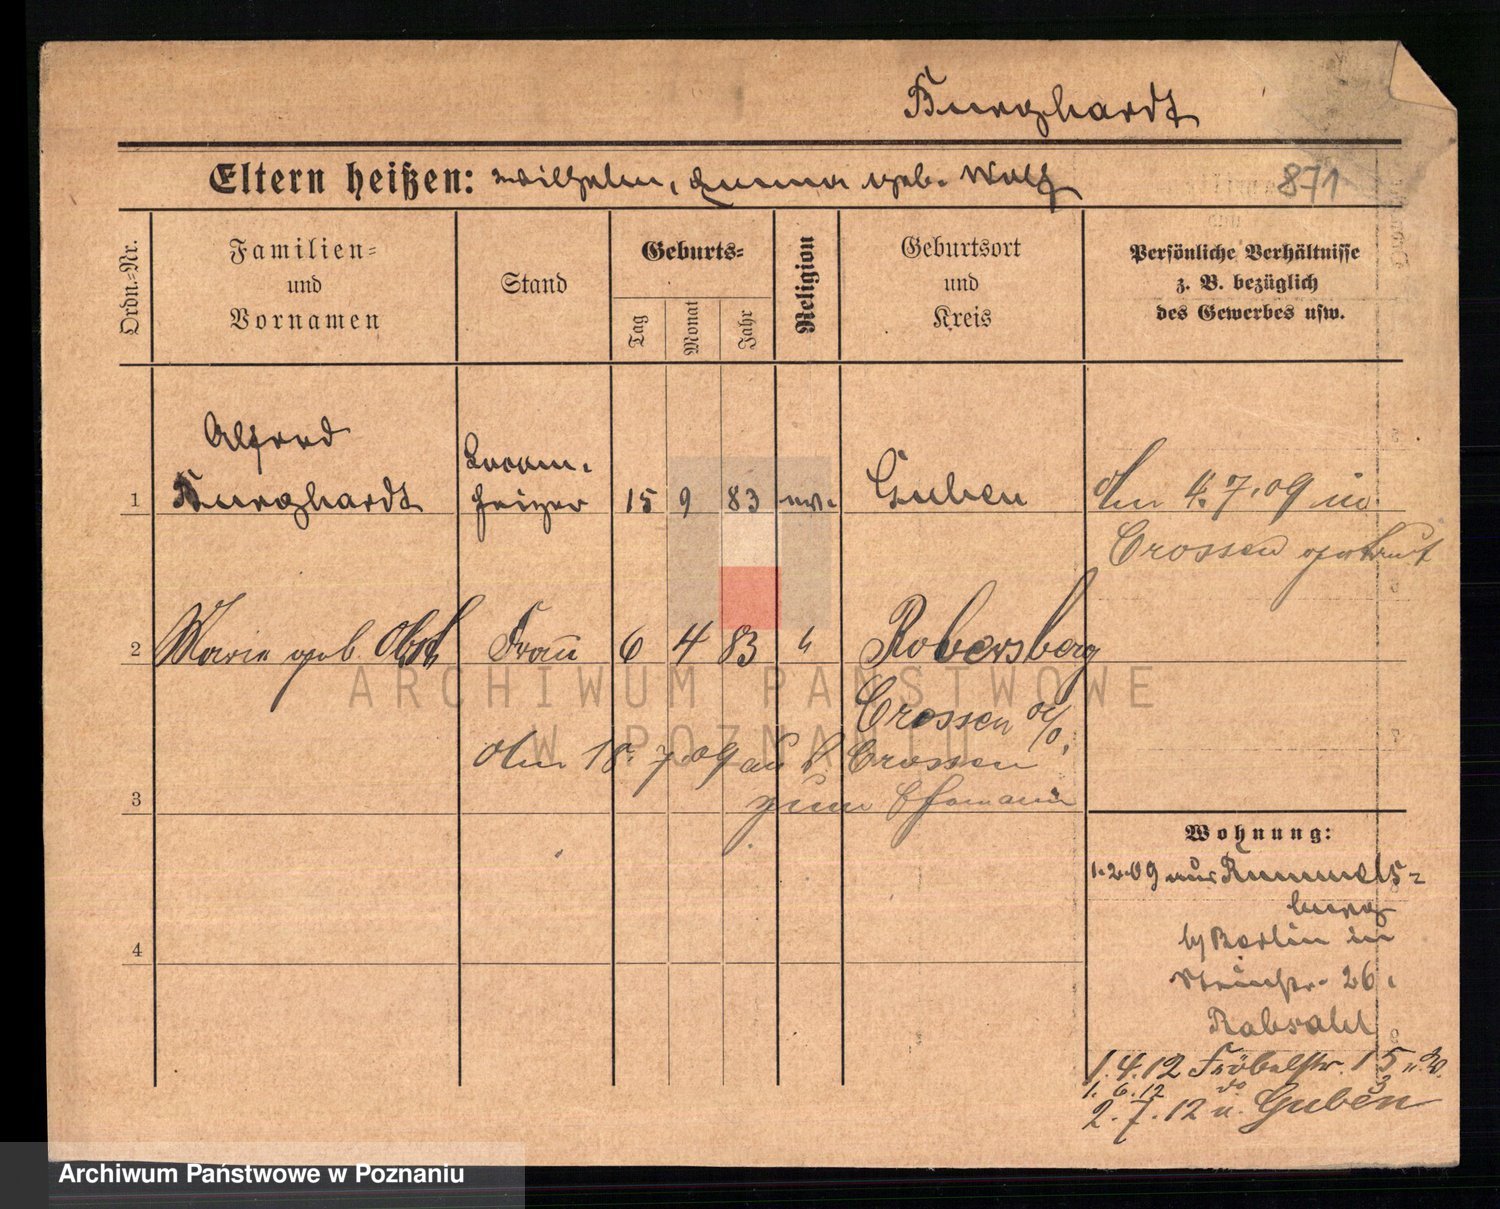 Burghardt
Eltern heißen: Wilhelm, Emma geb. Wolf
871
Ordn.-Nr.
Familien-
und
Vornamen
Stand
Geburts-
Tag
Monat
Jahr
Religion
Geburtsort
und
Kreis
Persönliche Verhältnisse
z. B. bezüglich
des Gewerbes usw.
Alfred
Burghardt
Locom.
heizer
1
15 9 83 ev. Guben
Am 4.7.09 in
Crossen getraut
2
Marie geb. Obst Frau 6 4 83 " Robersberg
Crossen o/O.
Am 18.7.09 aus Crossen
zum Ehemann
3
4
Wohnung:
1.2.09 aus Rummels-
burg
b/ Berlin in
26.
1.4.12 Fröbelstr. 15
1.6.12 do 3
2.7.12 n. Guben
ARCHIWUM PAŃSTWOWE
W POZNANIU
Archiwum Państwowe w Poznaniu